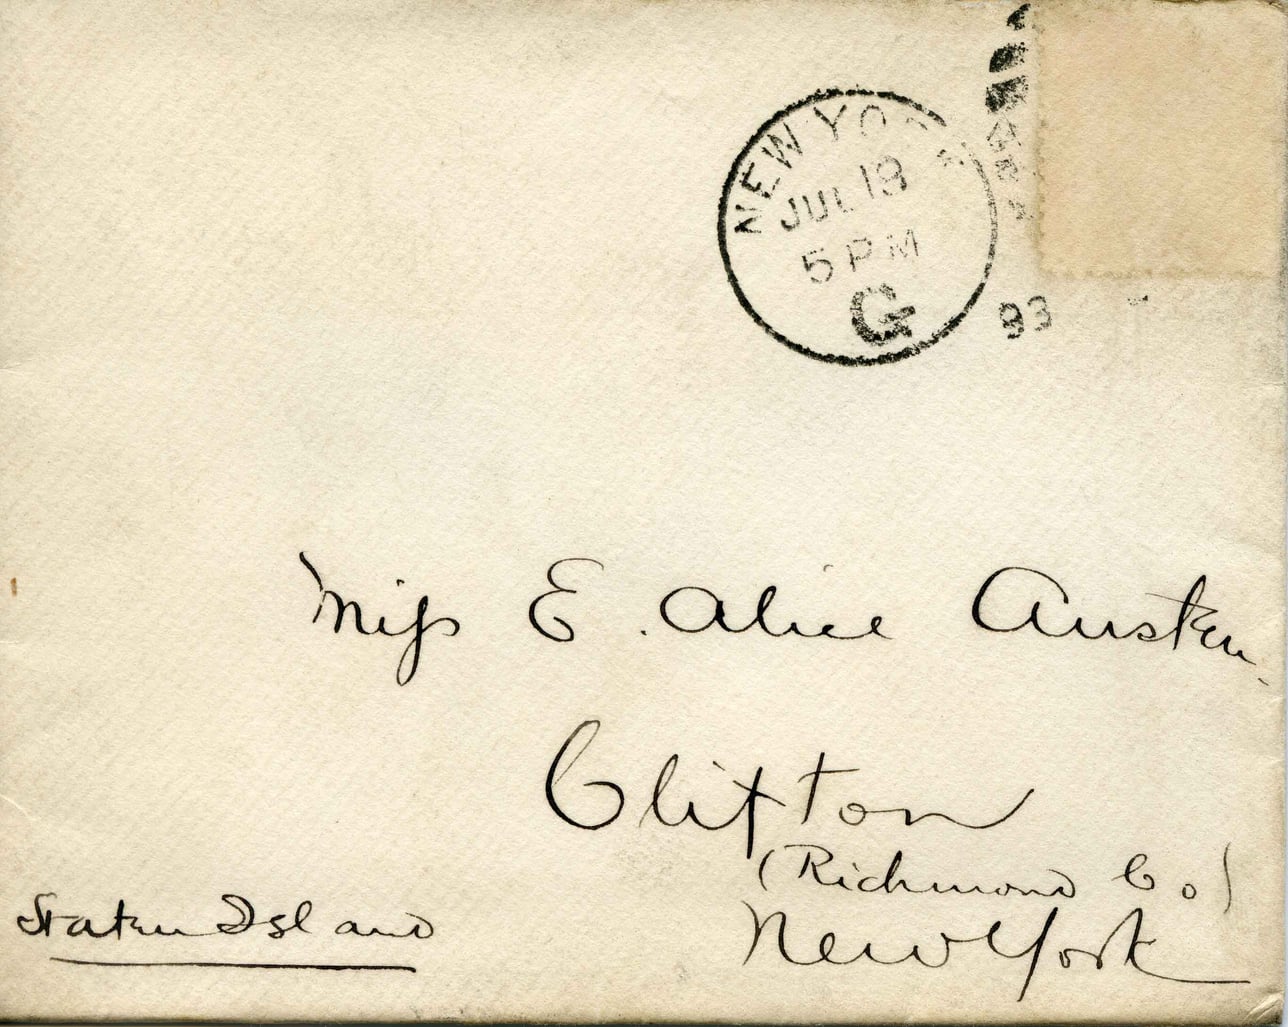 NEW YORK
JUL 19
5 PM
G
93
Miss E. Alice Austen.
Clifton
(Richmond Co)
New York
Staten Island